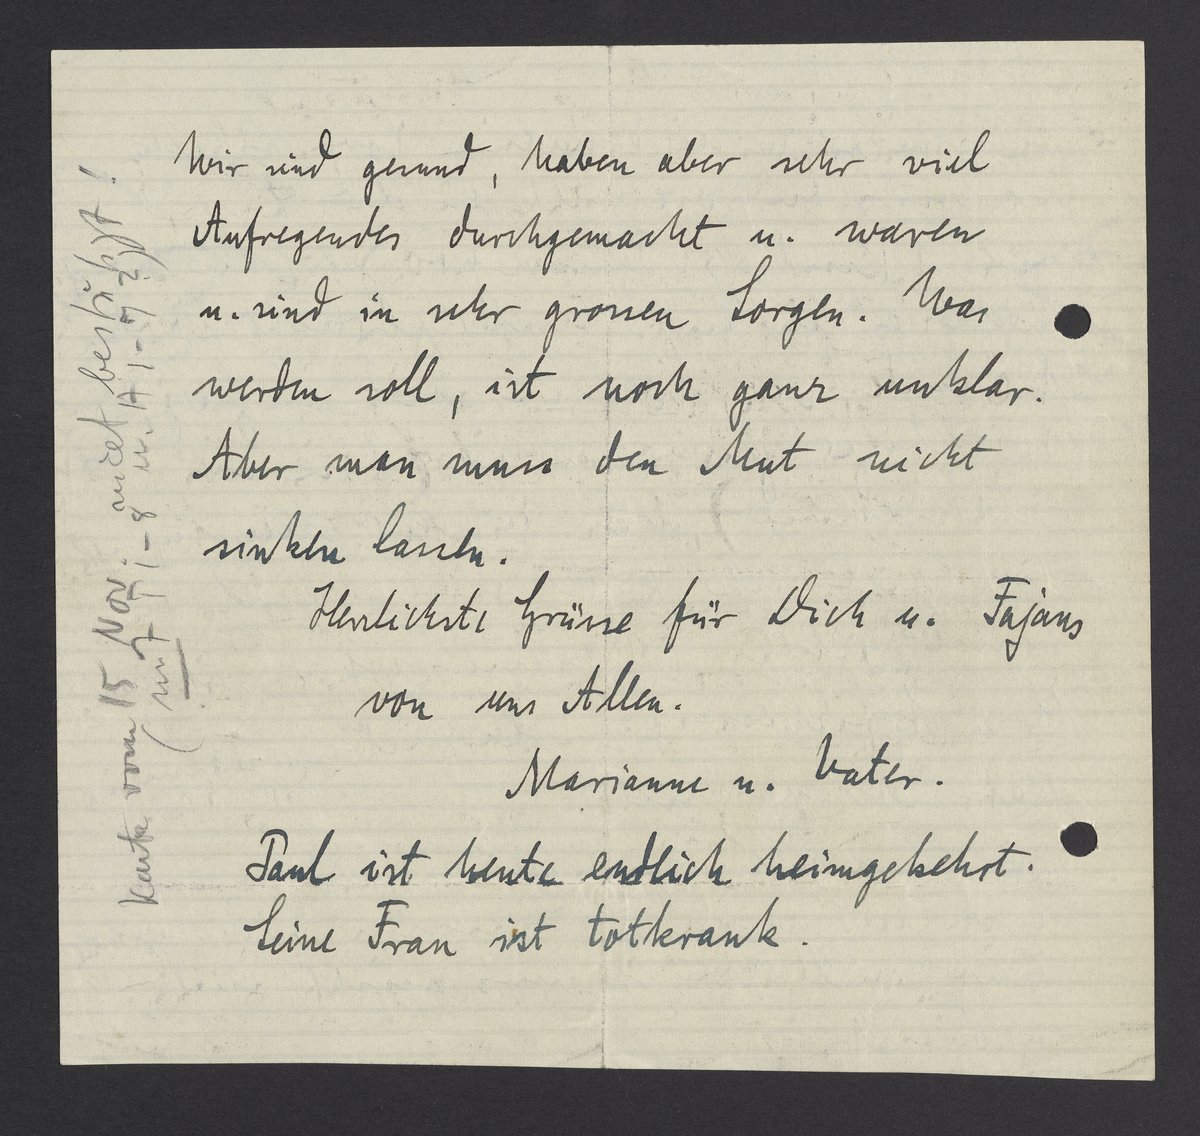 Wir sind gesund, haben aber sehr viel
Aufregendes durchgemacht u. waren
u. sind in sehr grossen Sorgen. Was
werden soll, ist noch ganz unklar.
Aber man muss den Mut nicht
sinken lassen.
Herzlichste Grüsse für Dich u. Fajans
von uns Allen.
Marianne u. Vater.
Paul ist heute endlich heimgekehrt.
Seine Frau ist totkrank.
Karte vom 15 Nov. nicht bestätigt!
(mit I-8 u. A I-